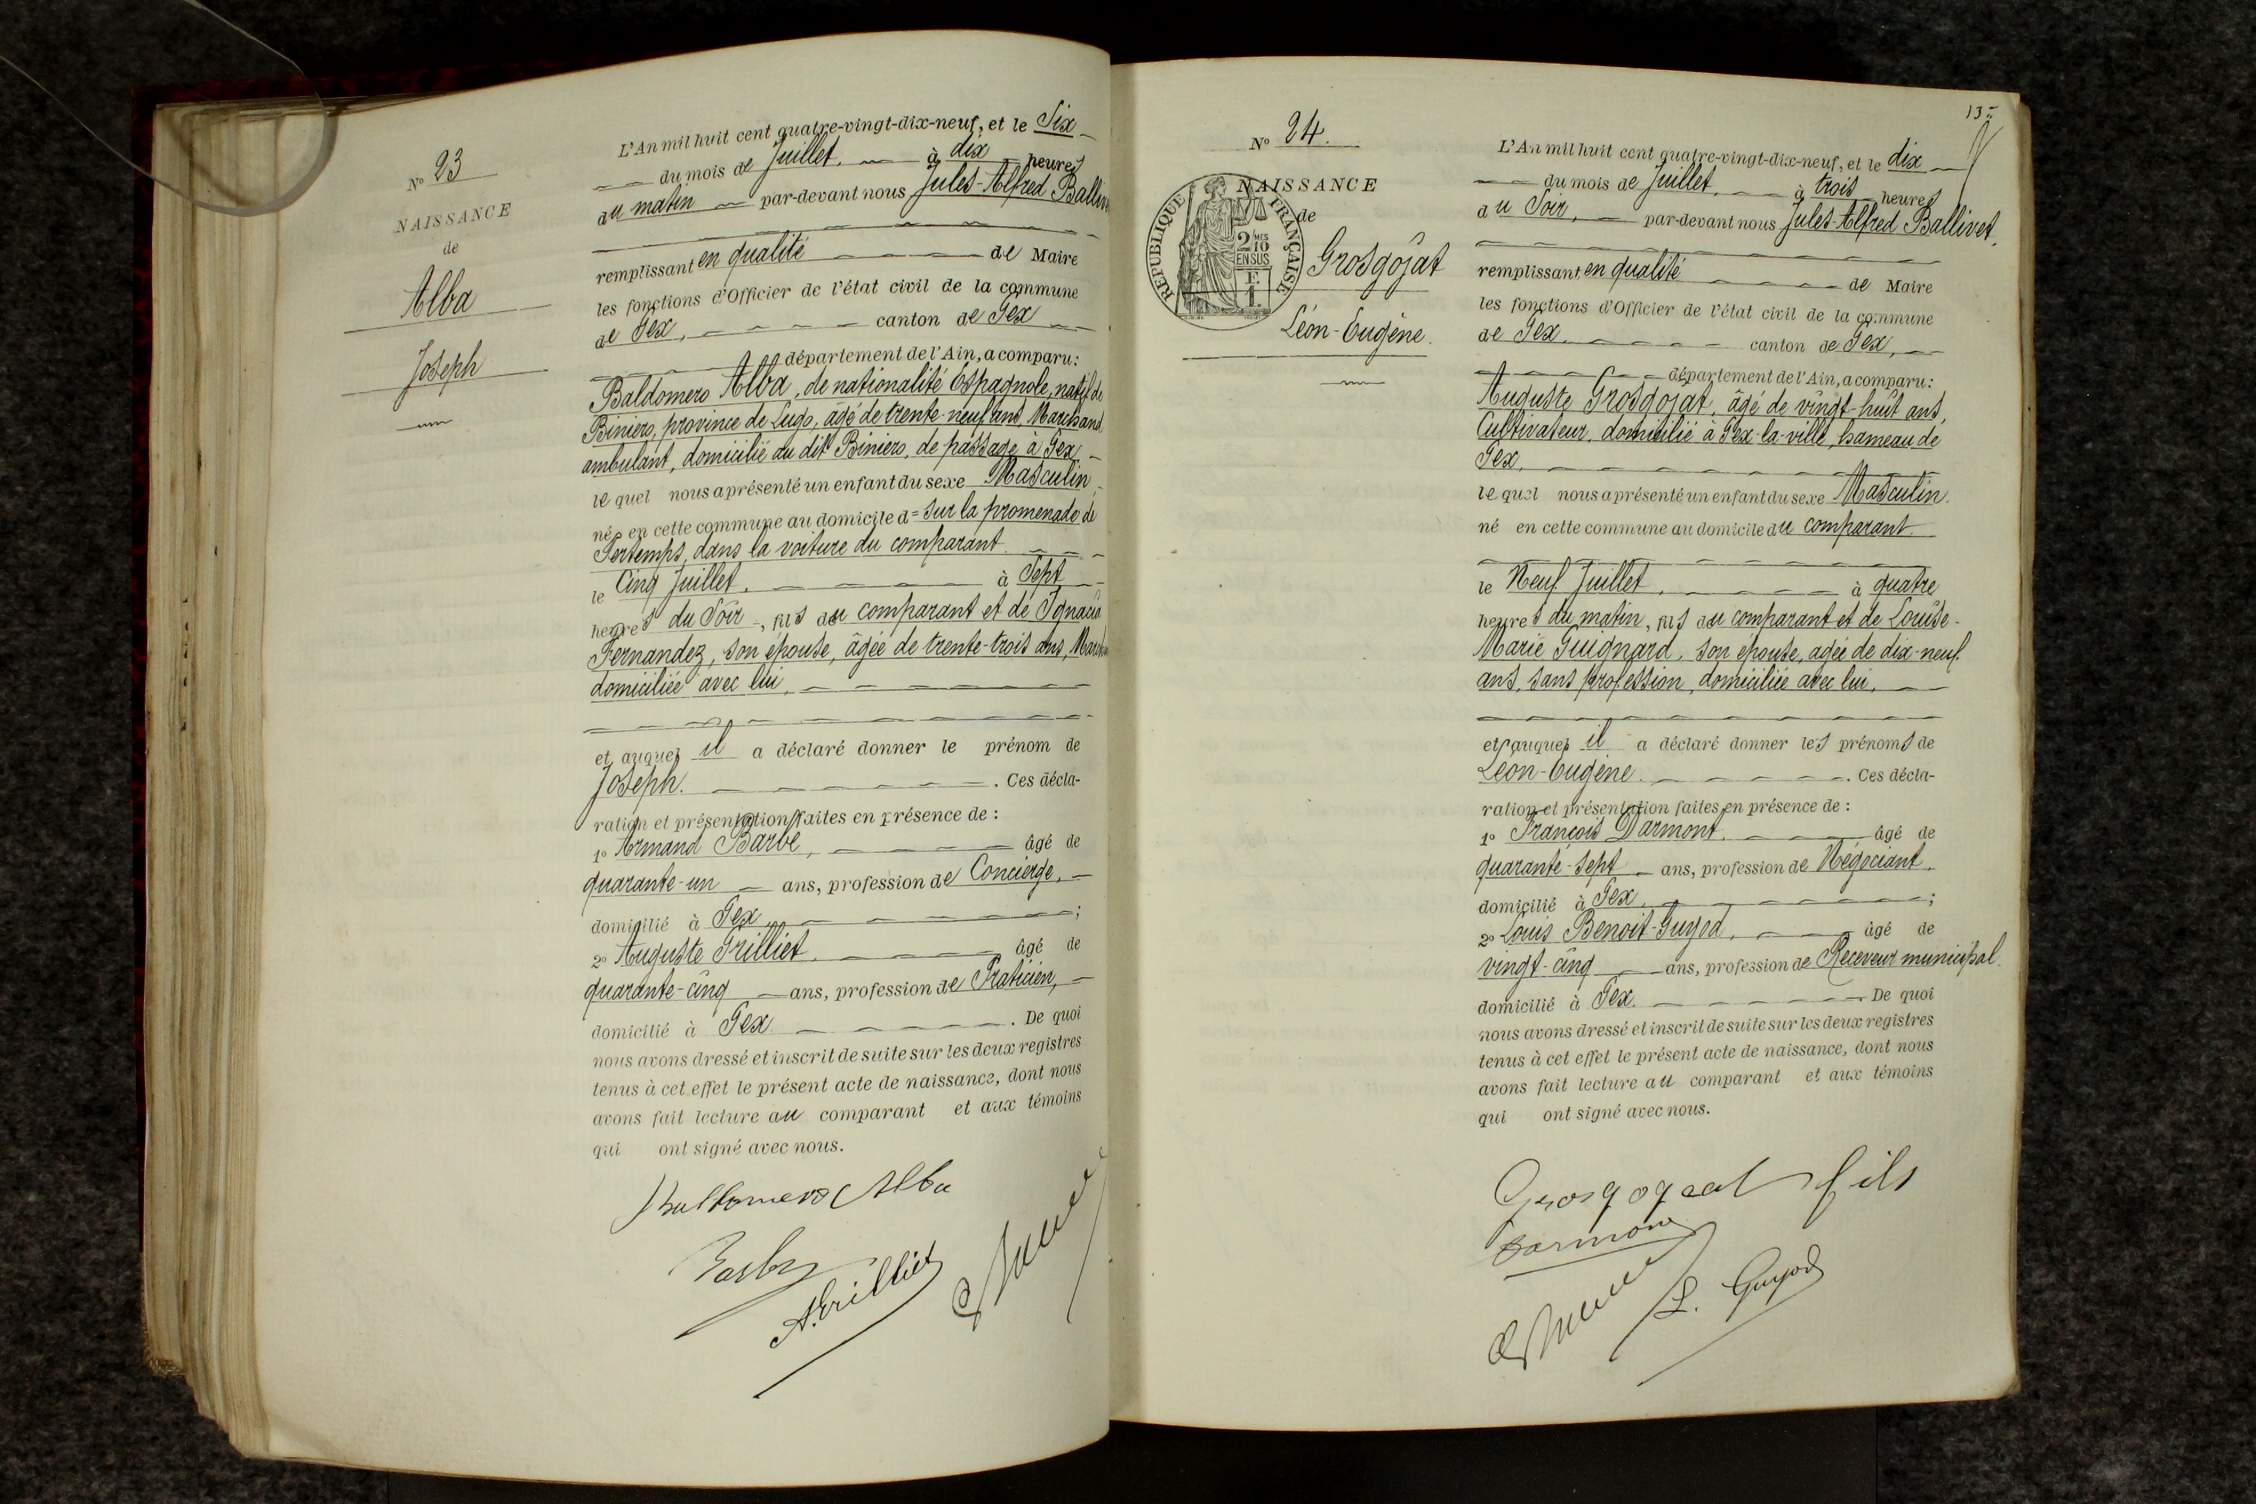 N° 23
NAISSANCE
de
Alba
Joseph
L'An mil huit cent quatre-vingt-dix-neuf, et le Six
du mois de Juillet, à dix heures
du matin par-devant nous Jules-Alfred
remplissant en qualité de Maire
les fonctions d'Officier de l'état civil de la commune
de Gex, canton de Gex
département de l'Ain, a comparu:
Baldomero Alba, de nationalité Espagnole, natif de
Biniero, province de Lugo, âgé de trente-neuf ans, Marchand
ambulant, domicilié au dit Biniero, de passage à Gex
le quel nous a présenté un enfant du sexe Masculin,
né en cette commune au domicile d= sur la promenade de
Pertemps, dans la voiture du comparant
le Cinq Juillet, à Sept
heures du Soir, fils du comparant et de Ignacia
Fernandez, son épouse, âgée de trente-trois ans,
domiciliée avec lui,
et auquel il a déclaré donner le prénom de
Joseph. Ces décla-
ration et présentation faites en présence de :
1° Armand Barbe, âgé de
quarante-un ans, profession de Concierge,
domicilié à Gex ;
2° Auguste Grilliet âgé de
quarante-cinq ans, profession de Praticien,
domicilié à Gex. De quoi
nous avons dressé et inscrit de suite sur les deux registres
tenus à cet effet le présent acte de naissance, dont nous
avons fait lecture au comparant et aux témoins
qui ont signé avec nous.
Baldomero Alba
Barbe
A. Grilliet
135
N° 24.
RÉPUBLIQUE FRANÇAISE
2/10 MES
EN SUS
F.
1.
NAISSANCE
de
Grosgojat
Léon-Eugène.
L'An mil huit cent quatre-vingt-dix-neuf, et le dix
du mois de Juillet, à trois heures
du Soir, par-devant nous Jules-Alfred Ballivet,
remplissant en qualité de Maire
les fonctions d'Officier de l'état civil de la commune
de Gex canton de Gex,
département de l'Ain, a comparu:
Auguste Grosgojat, âgé de vingt-huit ans,
Cultivateur, domicilié à Gex-la-ville, hameau de
Gex,
le quel nous a présenté un enfant du sexe Masculin.
né en cette commune au domicile du comparant
le Neuf Juillet, à quatre
heures du matin, fils du comparant et de Louise-
Marie Guignard, son épouse, âgée de dix-neuf
ans, sans profession, domiciliée avec lui,
et auquel il a déclaré donner les prénoms de
Léon-Eugène. Ces décla-
ration et présentation faites en présence de :
1° François Darmont, âgé de
quarante-sept ans, profession de Négociant
domicilié à Gex, ;
2° Louis Benoit-Guyod, âgé de
vingt-cinq ans, profession de Receveur municipal.
domicilié à Gex. De quoi
nous avons dressé et inscrit de suite sur les deux registres
tenus à cet effet le présent acte de naissance, dont nous
avons fait lecture au comparant et aux témoins
qui ont signé avec nous.
Grosgogeat fils
Darmont
L. Guyod